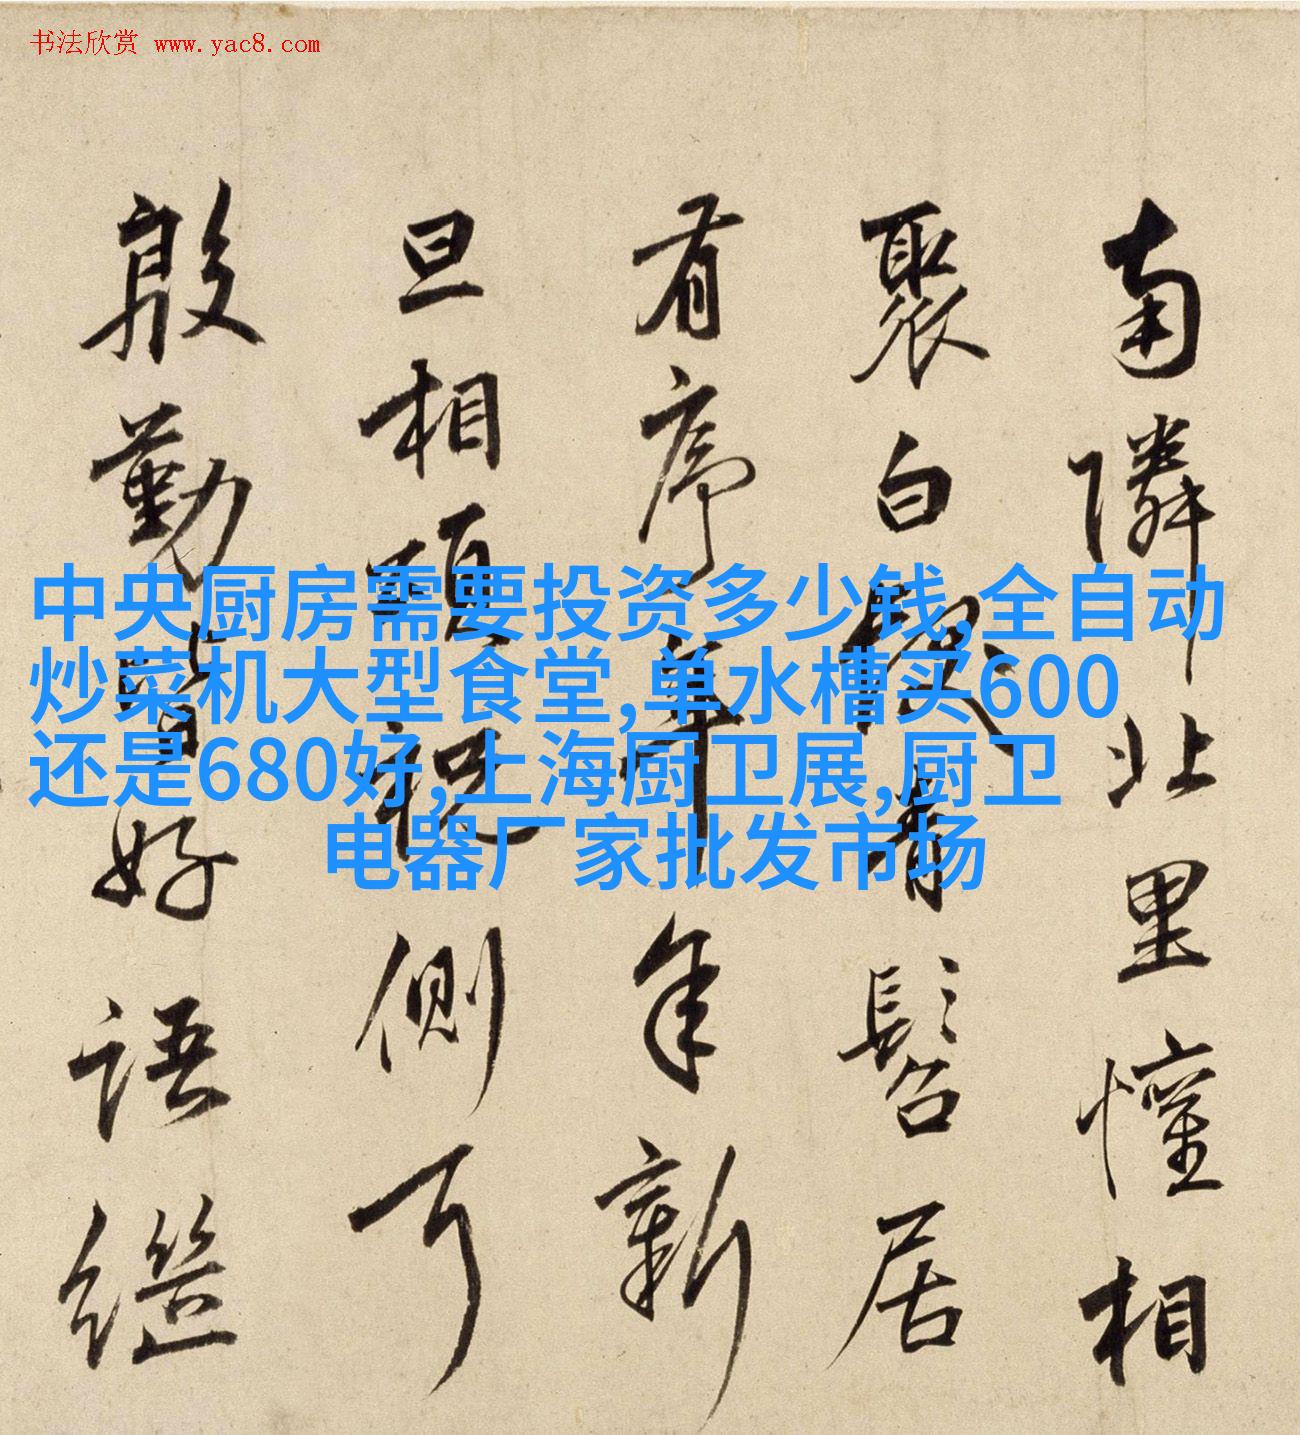 书法欣赏 www.yac8.com
南隣北里懽相
聚白髮青髫居
有序年年新
旦相頌祝側耳
殷勤皆好語繼
中央厨房需要投资多少钱,全自动
炒菜机大型食堂,单水槽买600
还是680好,上海厨卫展,厨卫
电器厂家批发市场